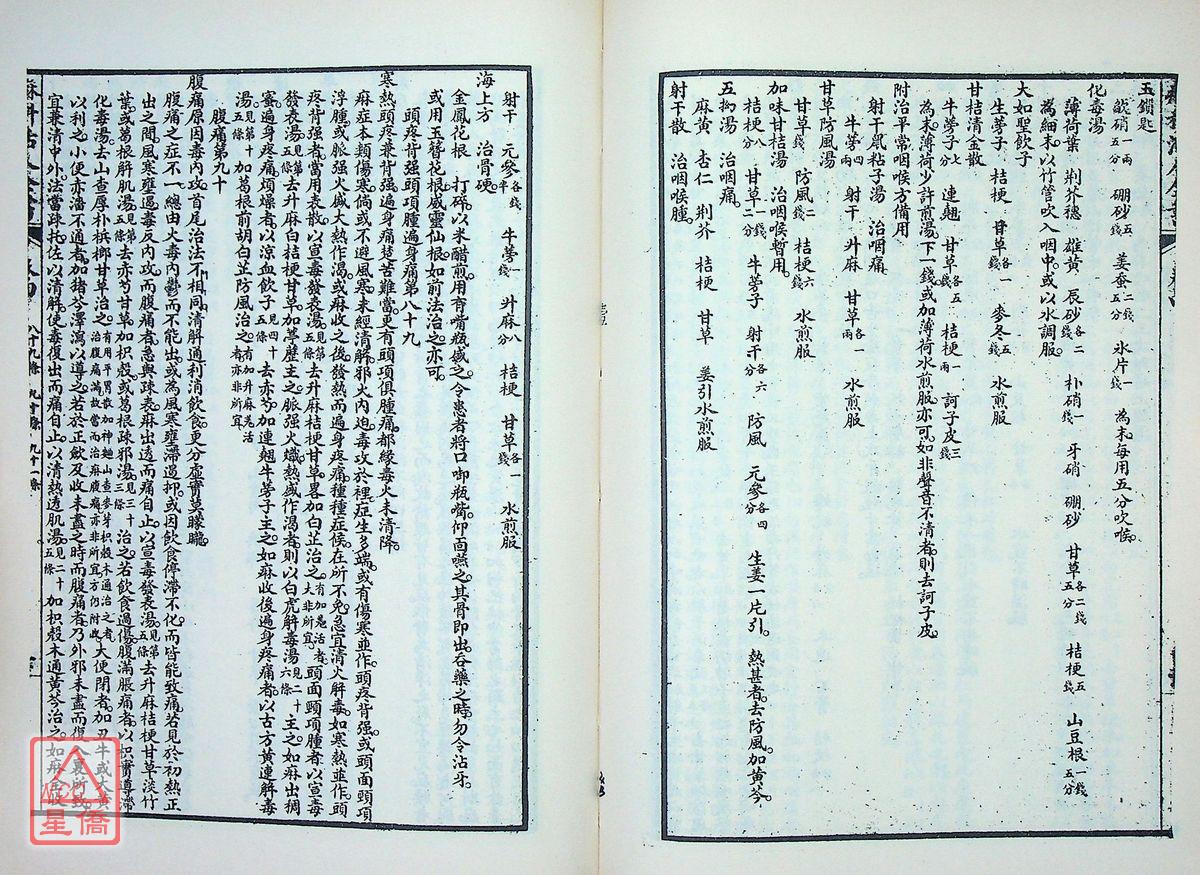 玉鎖匙
燄硝一兩五分 硼砂五錢 姜蚕二錢五分 氷片一錢 為末每用五分吹喉
化毒湯
薄荷葉 荆芥穗 雄黄 辰砂各二錢 朴硝一錢 牙硝 硼砂 甘草各二錢五分 桔梗五錢 山豆根一錢五分
為細末以竹管吹入咽中或以水調服
大如聖飲子
生蒡子 桔梗 甘草各一錢 麥冬五錢 水煎服
甘桔清金散
牛蒡子七分 連翹 甘草各五錢 桔梗一兩 訶子皮三錢
為末薄荷少許煎湯下一錢或加薄荷水煎服亦可如非聲音不清者則去訶子皮
附治平常咽喉方備用
射干鼠粘子湯 治咽痛
牛蒡四兩 射干 升麻 甘草各一兩 水煎服
甘草防風湯
甘草錢 防風二錢 桔梗六錢 水煎服
加味甘桔湯 治咽喉暫用
桔梗八分 甘草一錢二分 牛蒡子 射干各六分 防風 元參各四分 生姜一片引 熱甚者去防風加黄芩
五拗湯 治咽痛
麻黄 杏仁 荆芥 桔梗 甘草 姜引水煎服
射干散 治咽喉腫
射干 元參各錢半 牛蒡一錢 升麻八分 桔梗 甘草各一錢 水煎服
海上方 治骨硬
金鳳花根 打碎以米醋煎用有嘴瓶盛之令患者將口啣瓶嘴仰面嚥之其骨即出吞藥之時勿令沾牙
或用玉簪花根威靈仙根如前法治之亦可
頭疼背强頭項腫遍身痛第八十九
寒熱頭疼兼背强遍身痛楚苦難當更有頭項俱腫痛都緣毒火未清降
麻症本類傷寒倘或不避風寒未經清解邪火内迫毒攻於裡症生多端或有傷寒並作頭疼背强或頭面頸項
浮腫或脈强火盛大熱作渴或麻收之後發熱而遍身疼痛種種症候在所不免急宜清火解毒如寒熱並作頭
疼背强者當用表散以宣毒發表湯見第五條去升麻桔梗甘草畧加白芷治之有加羗活者大非所宜頭面頸項腫者以宣毒
發表湯見第五條去升麻白桔梗甘草加葶藶主之脈强火熾熱盛作渴者則以白虎解毒湯見二十六條主之如麻出稠
蜜遍身疼痛煩燥者以涼血飲子見四十五條去赤芍加連翹牛蒡子主之如麻收後遍身疼痛者以古方黄連解毒
湯見第十五條加葛根前胡白芷防風治之有加升麻羗活者亦非所宜
腹痛第九十
腹痛原因毒内攻首尾治法不相同清解通利消飲食更分虚實莫朦朧
腹痛之症不一總由火毒内鬱而不能出或為風寒壅滯遏抑或因飲食停滯不化而皆能致痛若見於初熱正
出之間風寒壅遏毒反内攻而腹痛者急與疎表麻出透而痛自止以宣毒發表湯見第五條去升麻桔梗甘草淡竹
葉或葛根解肌湯見第五條去赤芍甘草加枳殼或葛根疎邪湯見三十三條治之若飲食過傷腹滿脹痛者以枳實導滯
化毒湯去山查厚朴梹榔甘草治之有用平胃散加神麯山查麥芽枳殼木通治之者治腹痛滿故當而治麻腹痛亦非所宜方仍附收大便閉者加丑牛或大黄
以利之小便赤濇不通者加猪苓澤瀉以導之若於正歛及收未盡之時而腹痛者乃外邪未盡而復入裏所致
宜兼清中外法當疎托佐以清解使毒復出而痛自止以清熱透肌湯見二十五條加枳殼木通黄芩治之如麻全收
卷四 八十九條 九十條 九十一條
八僊星僑